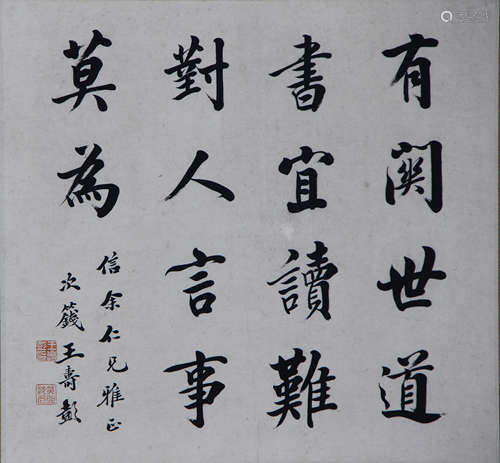 有関世道
書宜讀難
對人言事
莫為
信余仁兄雅正
次籛王壽彭